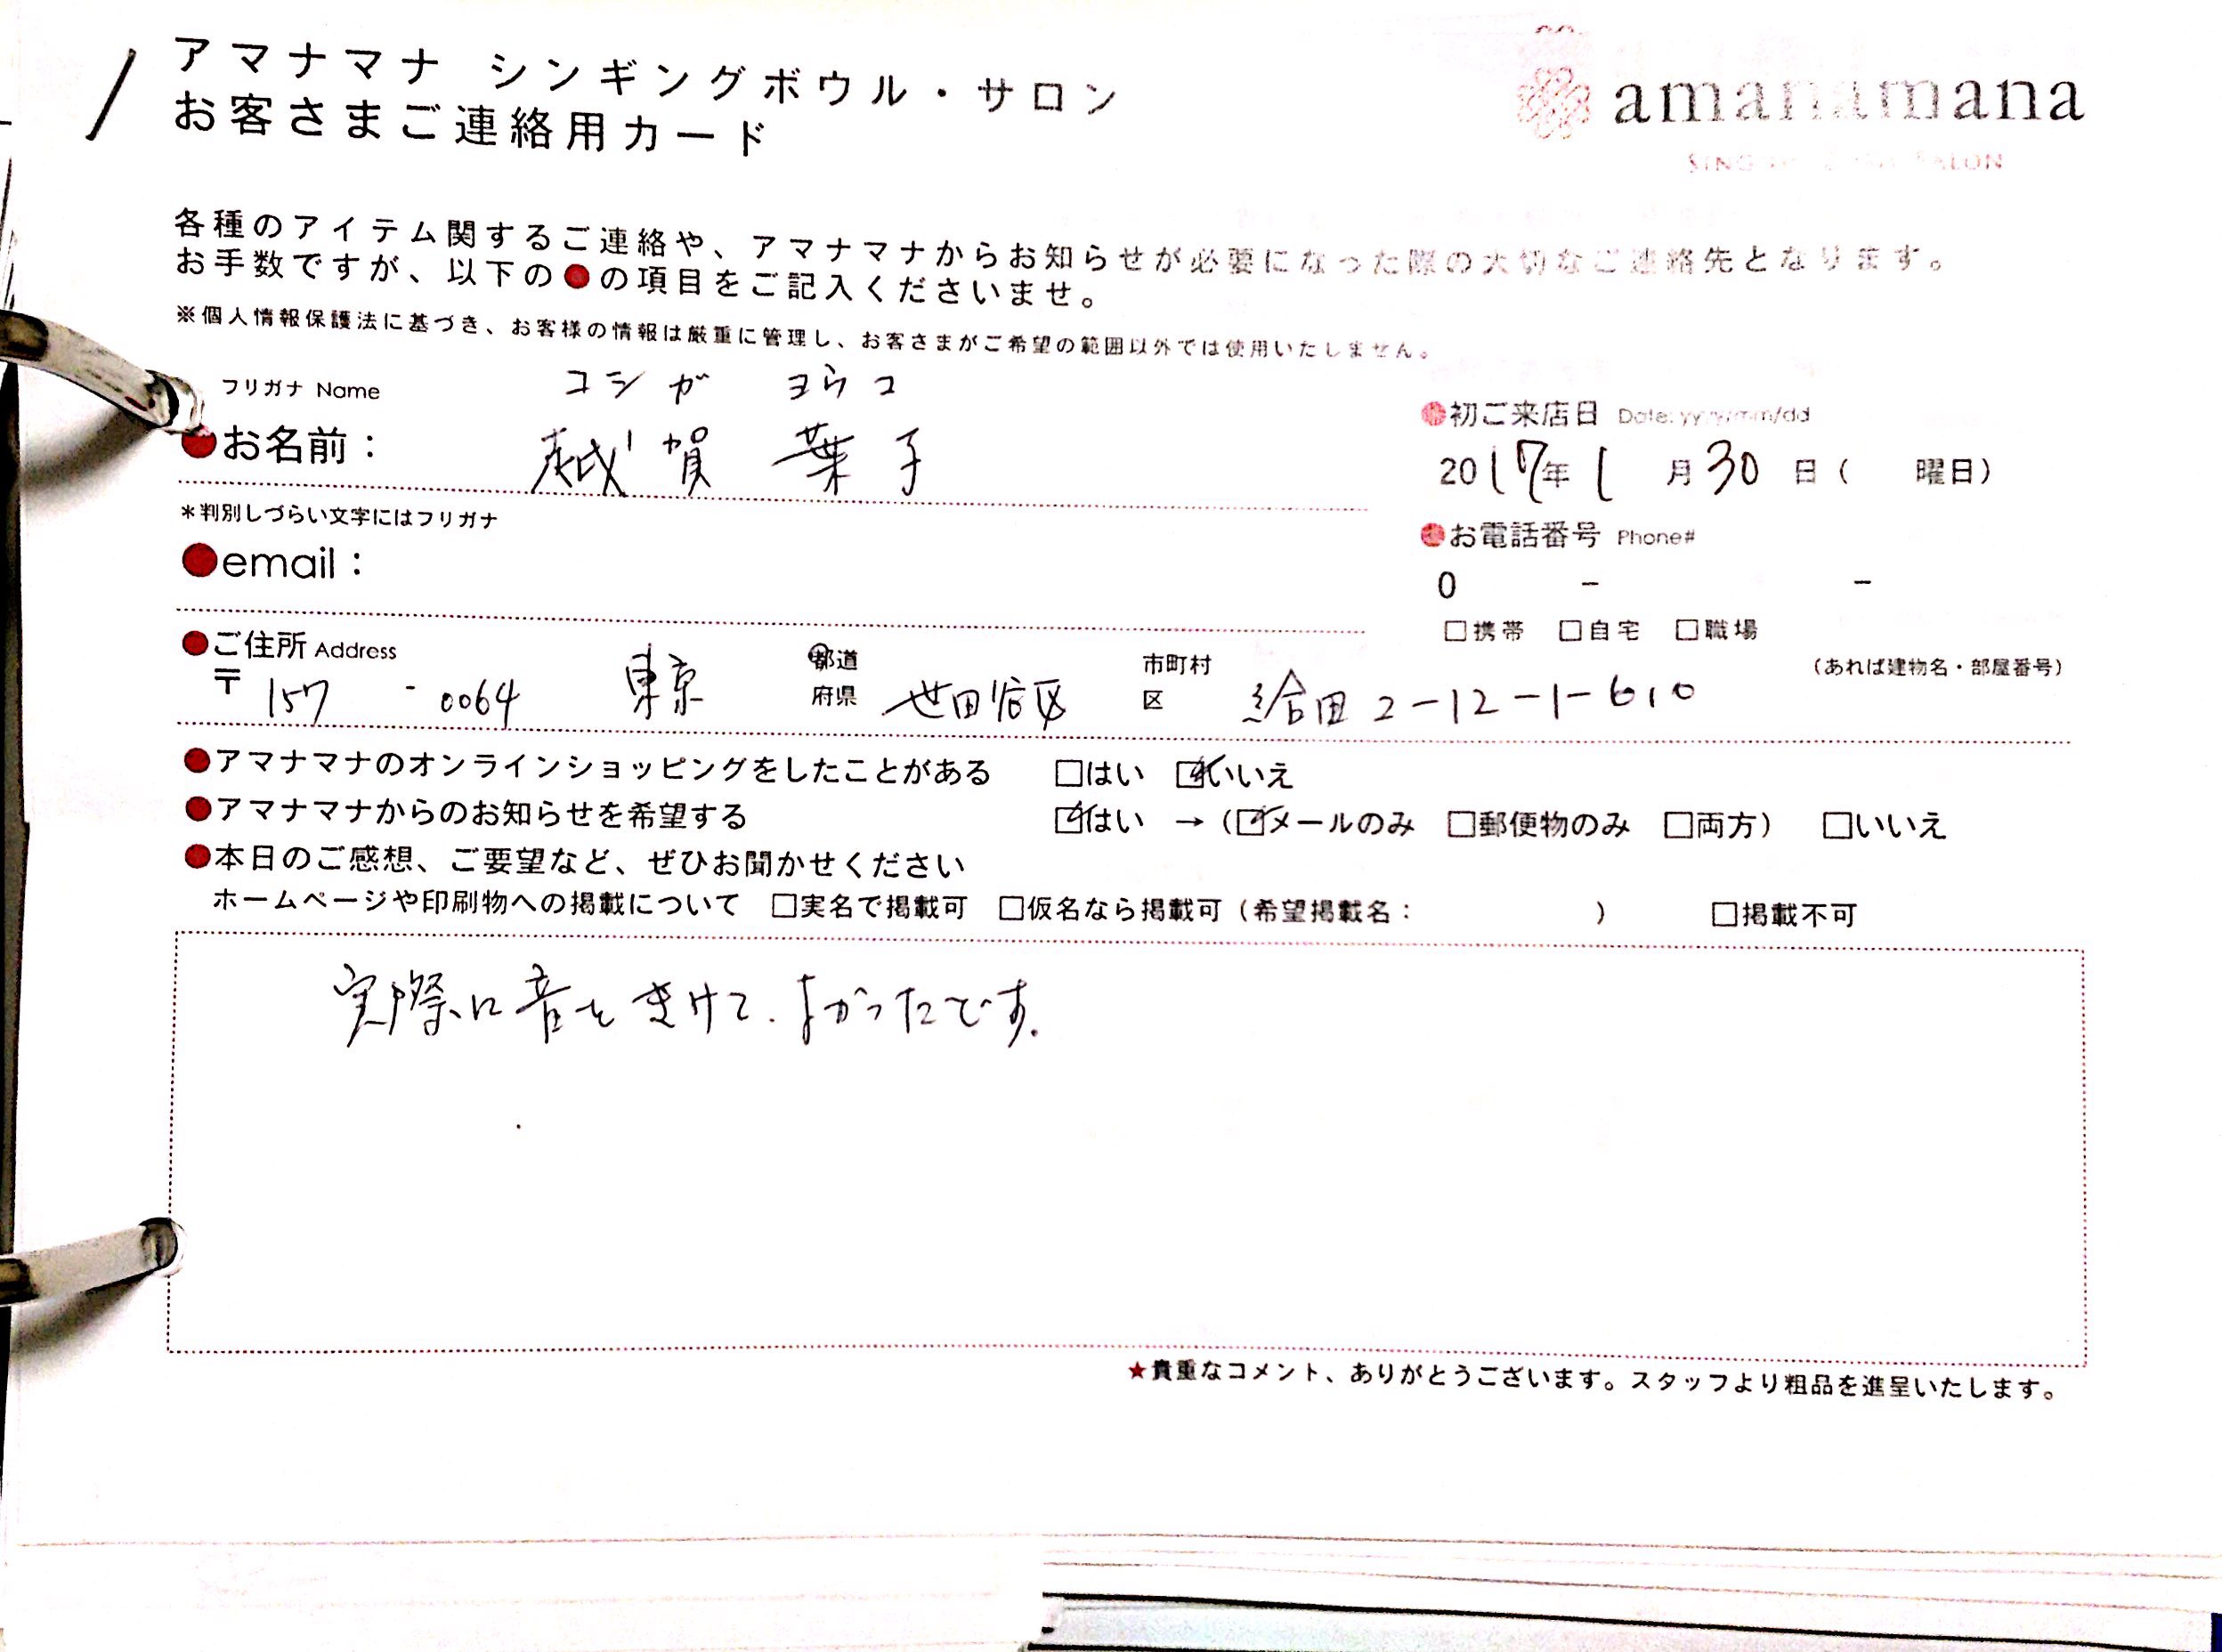 アマナマナ シンギングボウル・サロン
お客さまご連絡用カード
amanamana
SINGING BOWL SALON
各種のアイテム関するご連絡や、アマナマナからお知らせが必要になった際の大切なご連絡先となります。
お手数ですが、以下の●の項目をご記入くださいませ。
※個人情報保護法に基づき、お客様の情報は厳重に管理し、お客さまがご希望の範囲以外では使用いたしません。
フリガナ Name コシガ ヨウコ
●お名前： 越賀 葉子
●初ご来店日 Date: yyyy/mm/dd
2017年1月30日（ 曜日）
＊判別しづらい文字にはフリガナ
●email：
●お電話番号 Phone#
0 - -
□携帯 □自宅 □職場
●ご住所 Address
〒157-0064 東京 都道府県 世田谷区 市町村区 給田2-12-1-610 （あれば建物名・部屋番号）
●アマナマナのオンラインショッピングをしたことがある □はい ☑いいえ
●アマナマナからのお知らせを希望する ☑はい →（☑メールのみ □郵便物のみ □両方） □いいえ
●本日のご感想、ご要望など、ぜひお聞かせください
ホームページや印刷物への掲載について □実名で掲載可 □仮名なら掲載可（希望掲載名： ） □掲載不可
実際に音をきけて、よかったです。
★貴重なコメント、ありがとうございます。スタッフより粗品を進呈いたします。